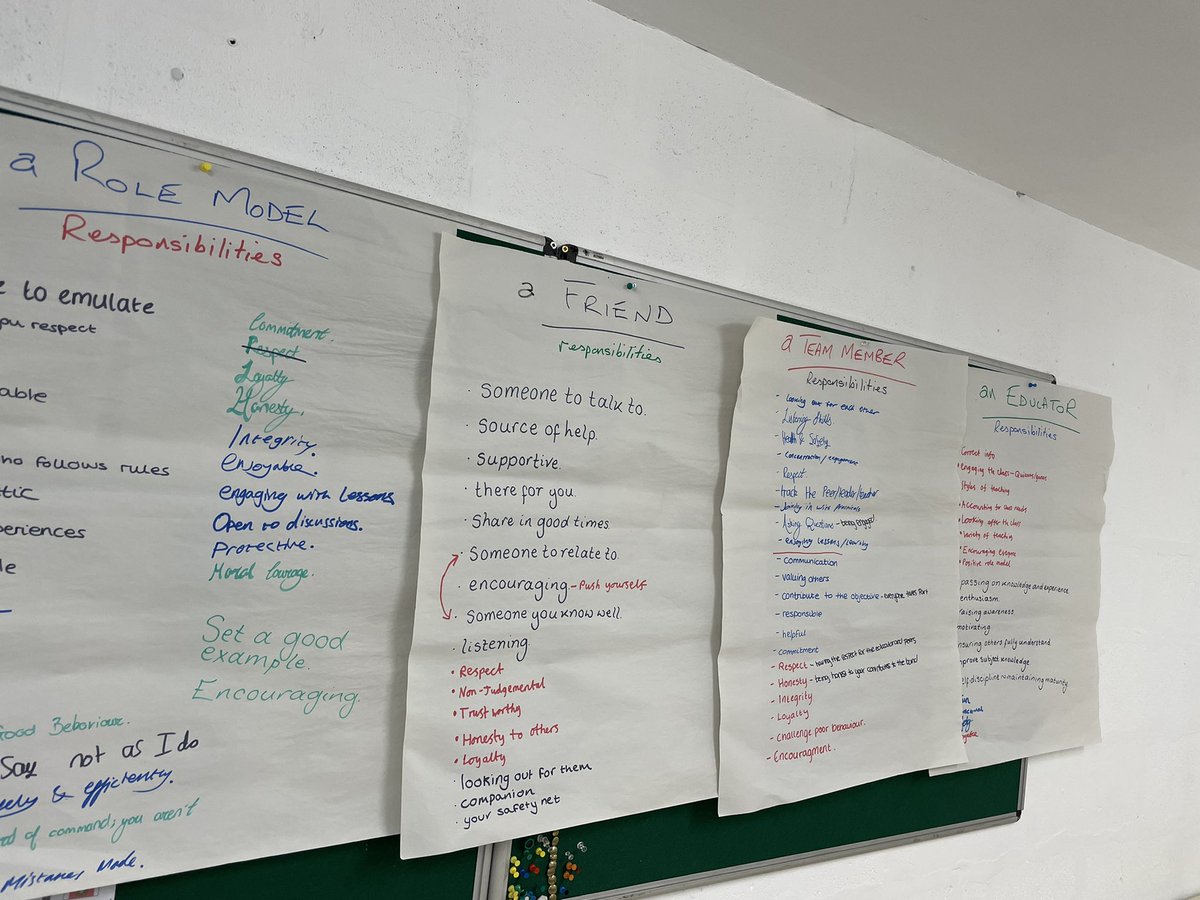 a ROLE MODEL
Responsibilities
to emulate
respect
able
follows rules
Commitment.
Respect
Loyalty
Honesty.
Integrity.
enjoyable.
engaging with Lessons
Open to discussions.
Protective.
Moral Courage.
Set a good
example.
Encouraging.
Good Behaviour.
Say not as I do
& efficiently.
of command; you aren't
Mistakes Made.
a FRIEND
responsibilities
· Someone to talk to.
· Source of help.
· Supportive.
· there for you.
· Share in good times
· Someone to relate to.
· encouraging - Push yourself
· Someone you know well.
· listening.
• Respect
• Non-Judgemental
• Trust worthy
• Honesty to others
• Loyalty
· looking out for them
· companion
· your safety net
a TEAM MEMBER
Responsibilities
- Looking out for each other
- Listening Skills
- Health & Safety
- Concentration / engagement
- Respect
- track the Peer/leader/teacher
- Joining in with
- Asking Questions - being engaged
- enjoying Lessons / Learning
- communication
- valuing others
- contribute to the objective - everyone takes Part
- responsible
- helpful
- commitment
- Respect - having the respect for the educator and peers
- Honesty - being honest to your
- Integrity
- Loyalty
- Challenge poor behaviour.
- Encouragment.
an EDUCATOR
Responsibilities
Correct info
• Engaging the class - Quizzes/games
Styles of teaching
• Accounting to needs
• Looking after the class
• Variety of teaching
• Encouraging everyone
• Positive role model
passing on knowledge and experience
enthusiasm
raising awareness
motivating
ensuring others fully understand
improve subject knowledge
self discipline - maintaining maturity